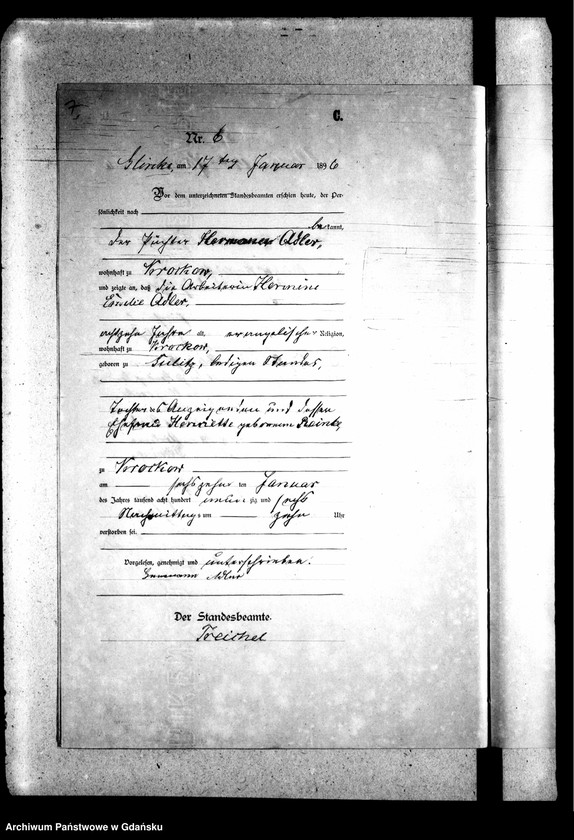 7,
C.
Nr. 6
am 17ten Januar 1896
Vor dem unterzeichneten Standesbeamten erschien heute, der Per-
sönlichkeit nach
bekannt,
der Pächter Hermann Adler,
wohnhaft zu Krockow,
und zeigte an, daß die Arbeiterin Hermine
Emilie Adler,
achtzehn Jahre alt, evangelischer Religion,
wohnhaft zu Krockow,
geboren zu ledigen Standes,
Tochter des Anzeigenden und dessen
Ehefrau Henriette geborenen
zu Krockow
am sechszehnten Januar
des Jahres tausend acht hundert neunzig und sechs
Nachmittags um zehn Uhr
verstorben sei.
Vorgelesen, genehmigt und unterschrieben.
Hermann Adler
Der Standesbeamte.
Treichel
Archiwum Państwowe w Gdańsku